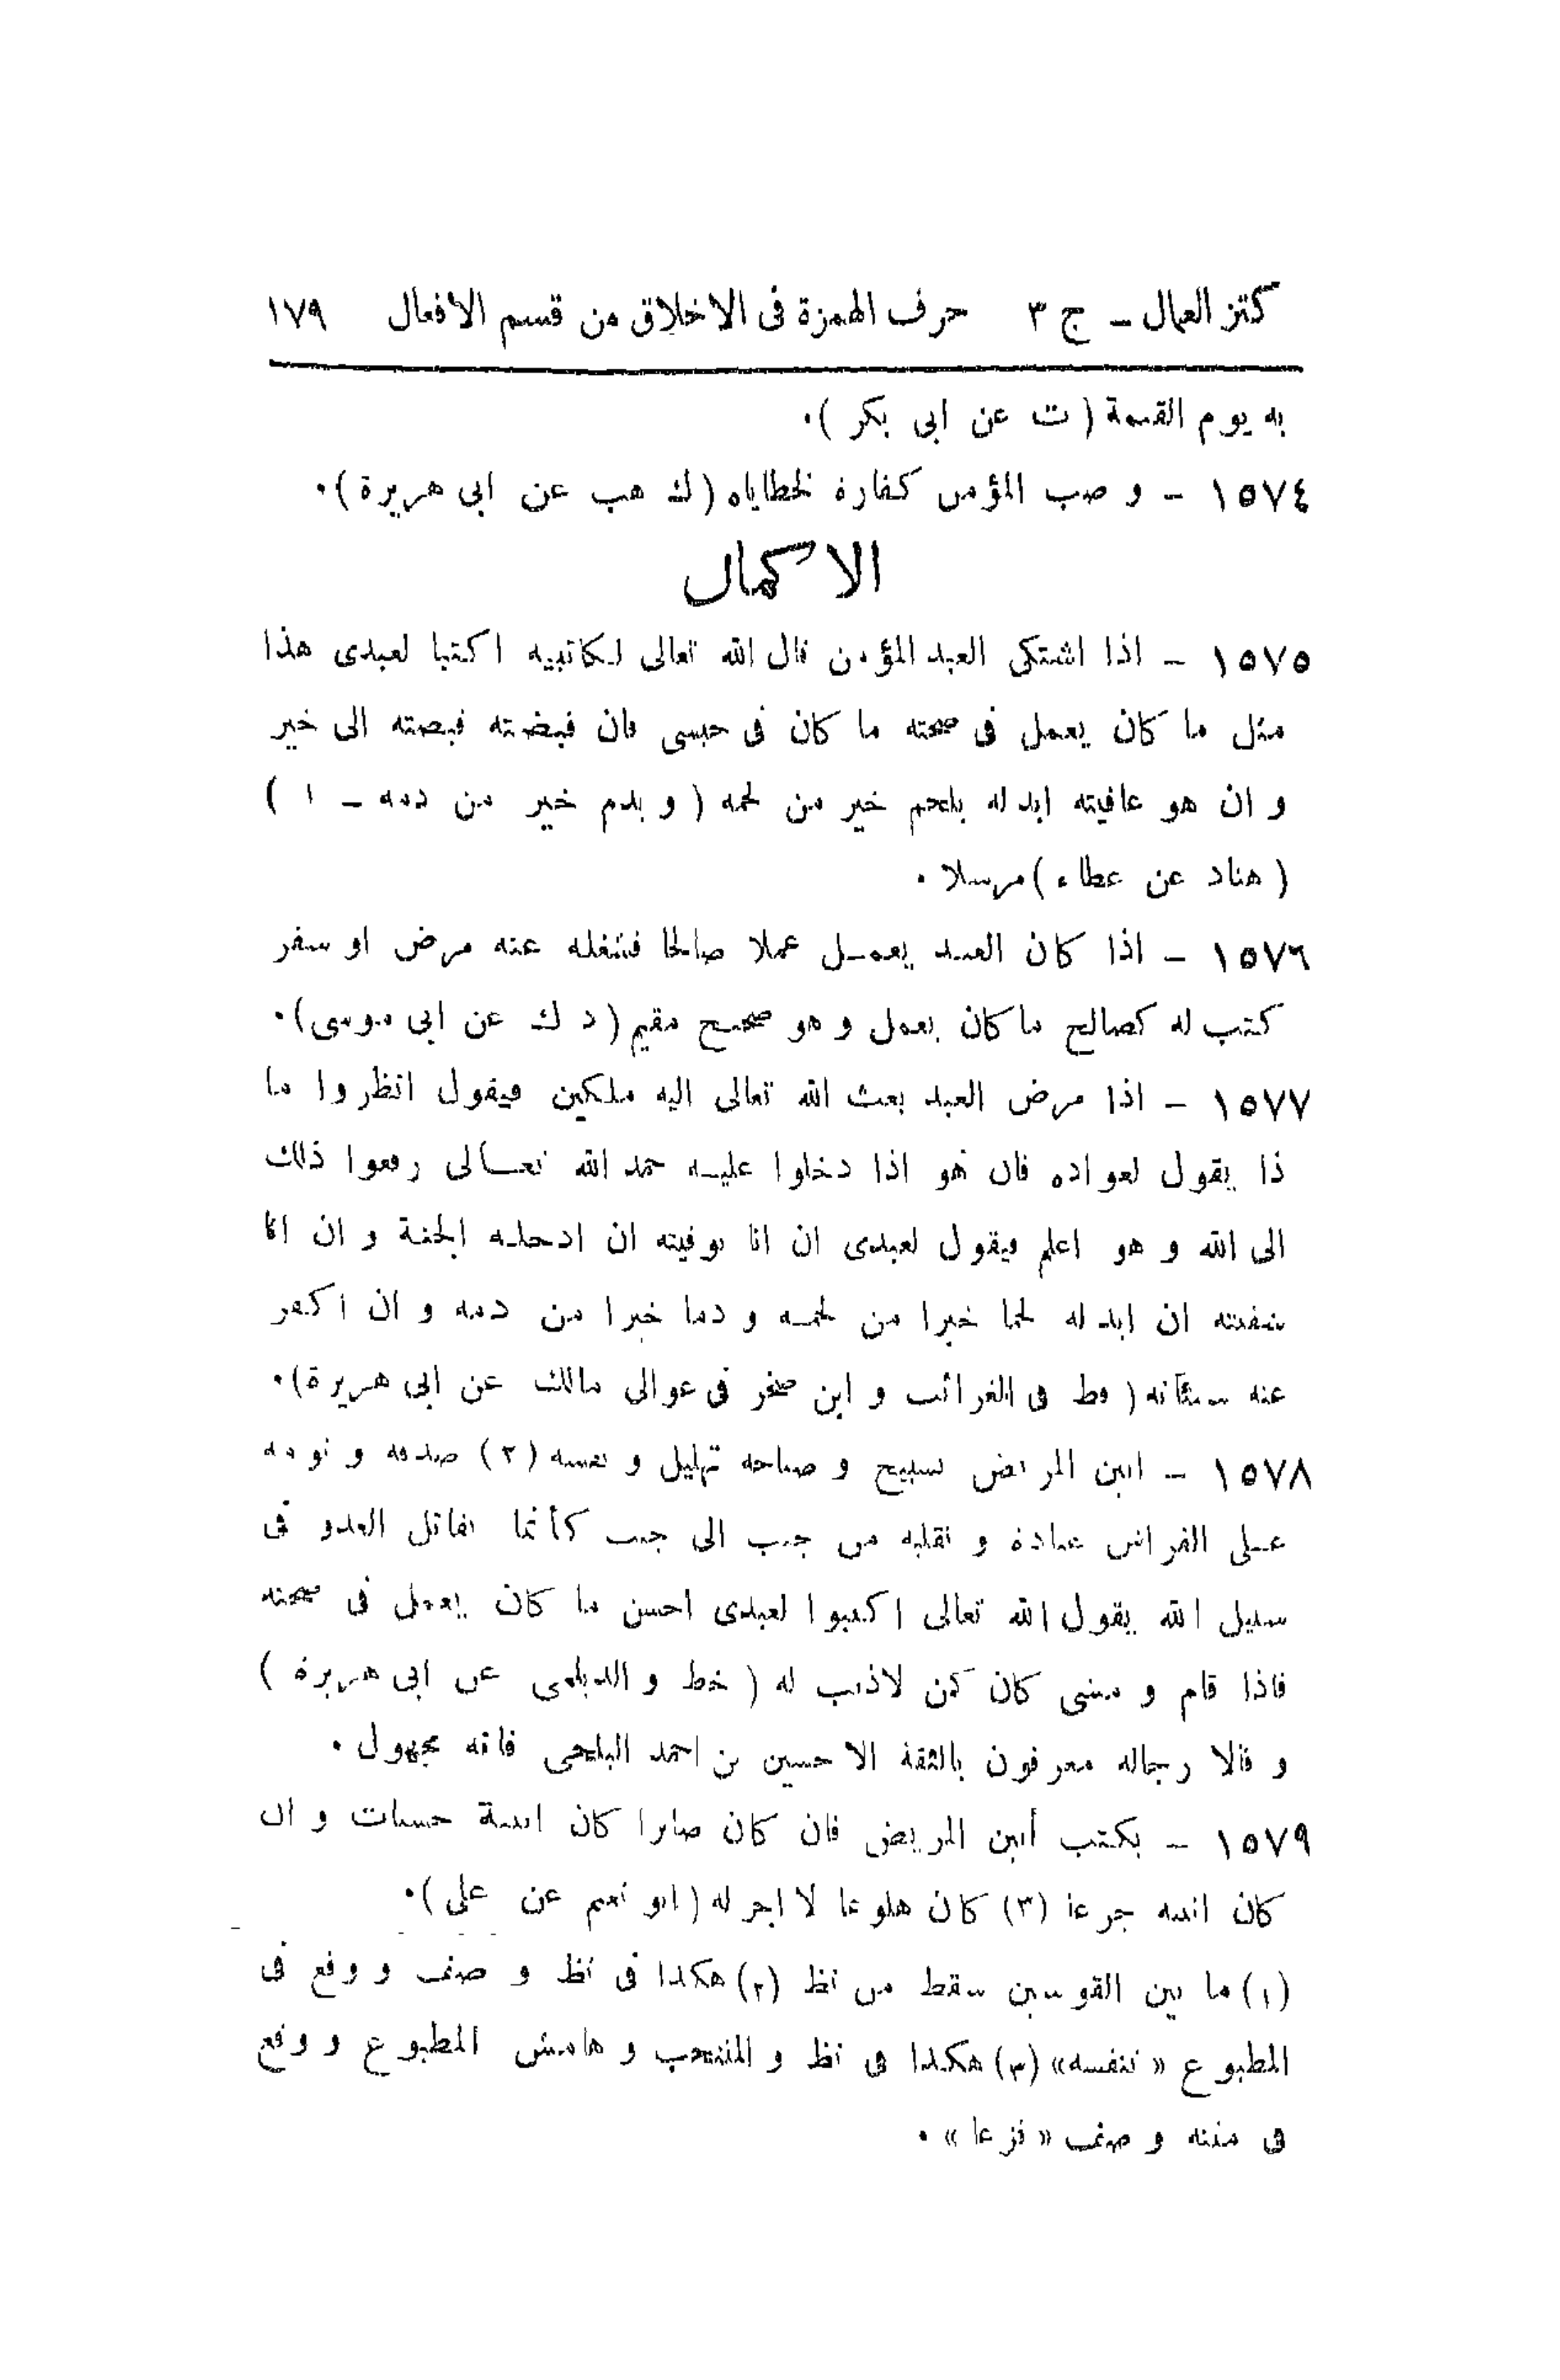 كنز العمال ــ ج ٣ حرف الهمزة فى الاخلاق من قسم الافعال ١٧٩
به يوم القيمة ( ت عن ابى بكر )٠
١٥٧٤ ــ وصب المؤمن كفارة لخطاياه ( ك هب عن ابى هريرة )٠
الاكمال
١٥٧٥ ــ اذا اشتكى العبد المؤمن قال الله تعالى لكاتبيه اكتبا لعبدى هذا
مثل ما كان يعمل فى صحته ما كان فى حبسى فان قبضته قبضته الى خير
و ان هو عافيته ابدله بلحم خير من لحمه ( و بدم خير من دمه ــ ١ )
( هناد عن عطاء ) مرسلا ٠
١٥٧٦ ــ اذا كان العبد يعمل عملا صالحا فشغله عنه مرض او سفر
كتب له كصالح ما كان يعمل و هو صحيح مقيم ( د ك عن ابى موسى )٠
١٥٧٧ ــ اذا مرض العبد بعث الله تعالى اليه ملكين فيقول انظروا ما
ذا يقول لعواده فان هو اذا دخلوا عليه حمد الله تعالى رفعوا ذلك
الى الله و هو اعلم فيقول لعبدى ان انا توفيته ان ادخله الجنة و ان انا
شفيته ان ابدله لحما خيرا من لحمه و دما خيرا من دمه و ان اكفر
عنه سيئآته ( قط فى الغرائب و ابن صخر فى عوالى مالك عن ابى هريرة )٠
١٥٧٨ ــ انين المريض تسبيح و صياحه تهليل و نفسه (٢) صدقة و نومه
على الفراش عبادة و تقلبه من جنب الى جنب كأنما يقاتل العدو فى
سبيل الله يقول الله تعالى اكتبوا لعبدى احسن ما كان يعمل فى صحته
فاذا قام و مشى كان كمن لا ذنب له ( خط و الديلمى عن ابى هريرة )
و قالا رجاله معرفون بالثقة الا حسين بن احمد البلخى فانه مجهول ٠
١٥٧٩ ــ يكتب أنين المريض فان كان صابرا كان انينه حسنات و ان
كان انينه جزعا (٣) كان هلوعا لا اجر له ( ابو نعيم عن على )٠
(١) ما بين القوسين سقط من نظ (٢) هكذا فى نظ و صف و وقع فى
المطبوع « تنفسه» (٣) هكذا فى نظ و المنتخب و هامش المطبوع و وقع
فى متنه و صف « نزعا» ٠